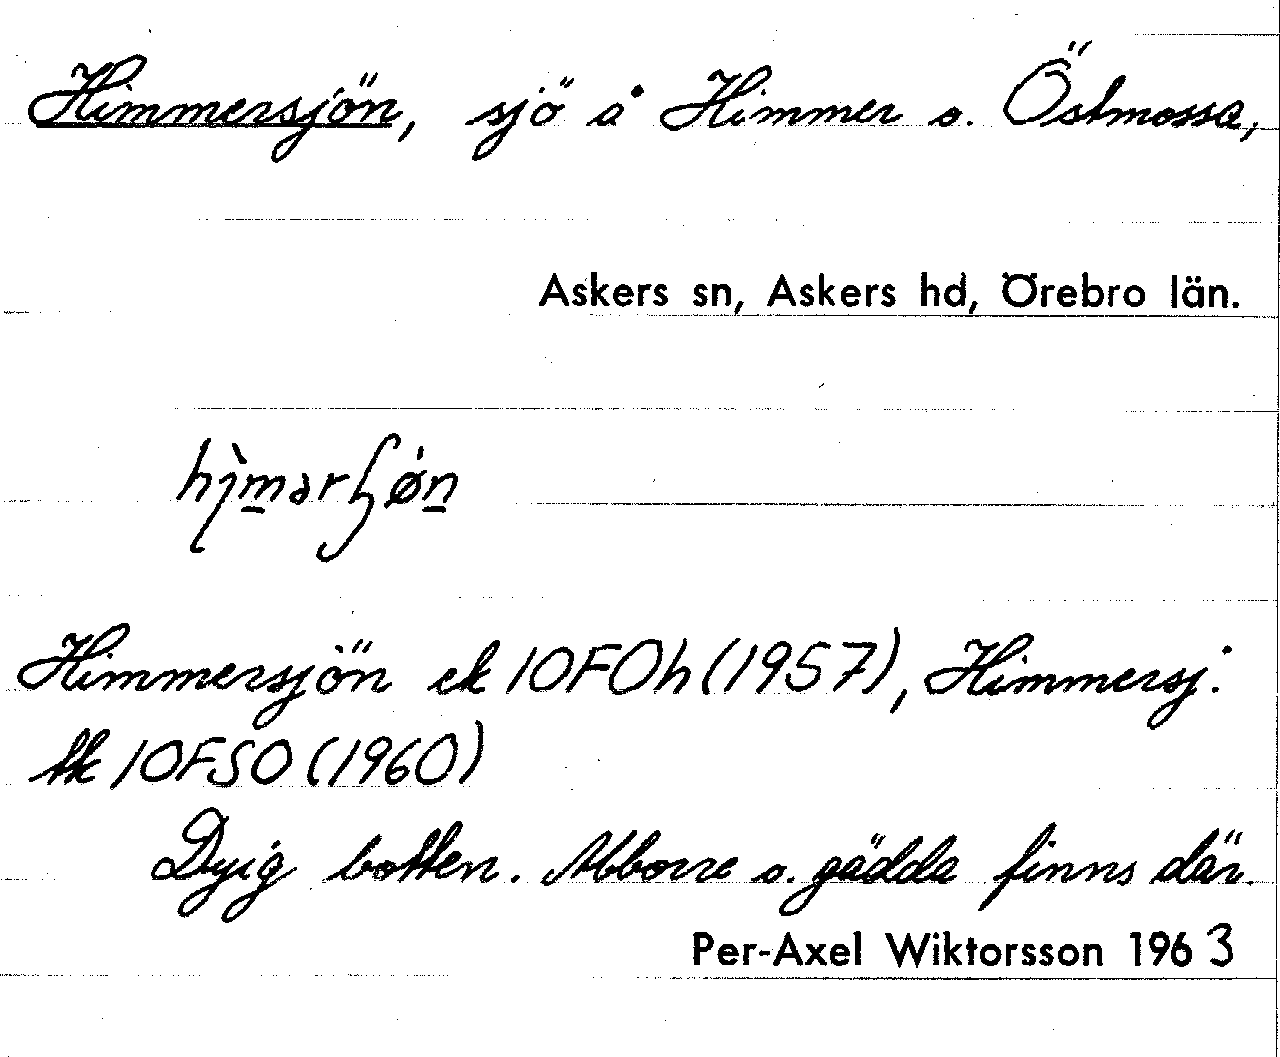 Himmersjön, sjö å Himmer o. Östmossa,
Askers sn, Askers hd, Örebro län.
Himmersjön ek 10FOh (1957), Himmersj.
tk 10FSO (1960)
Dyig botten. Abborre o. gädda finns där.
Per-Axel Wiktorsson 1963